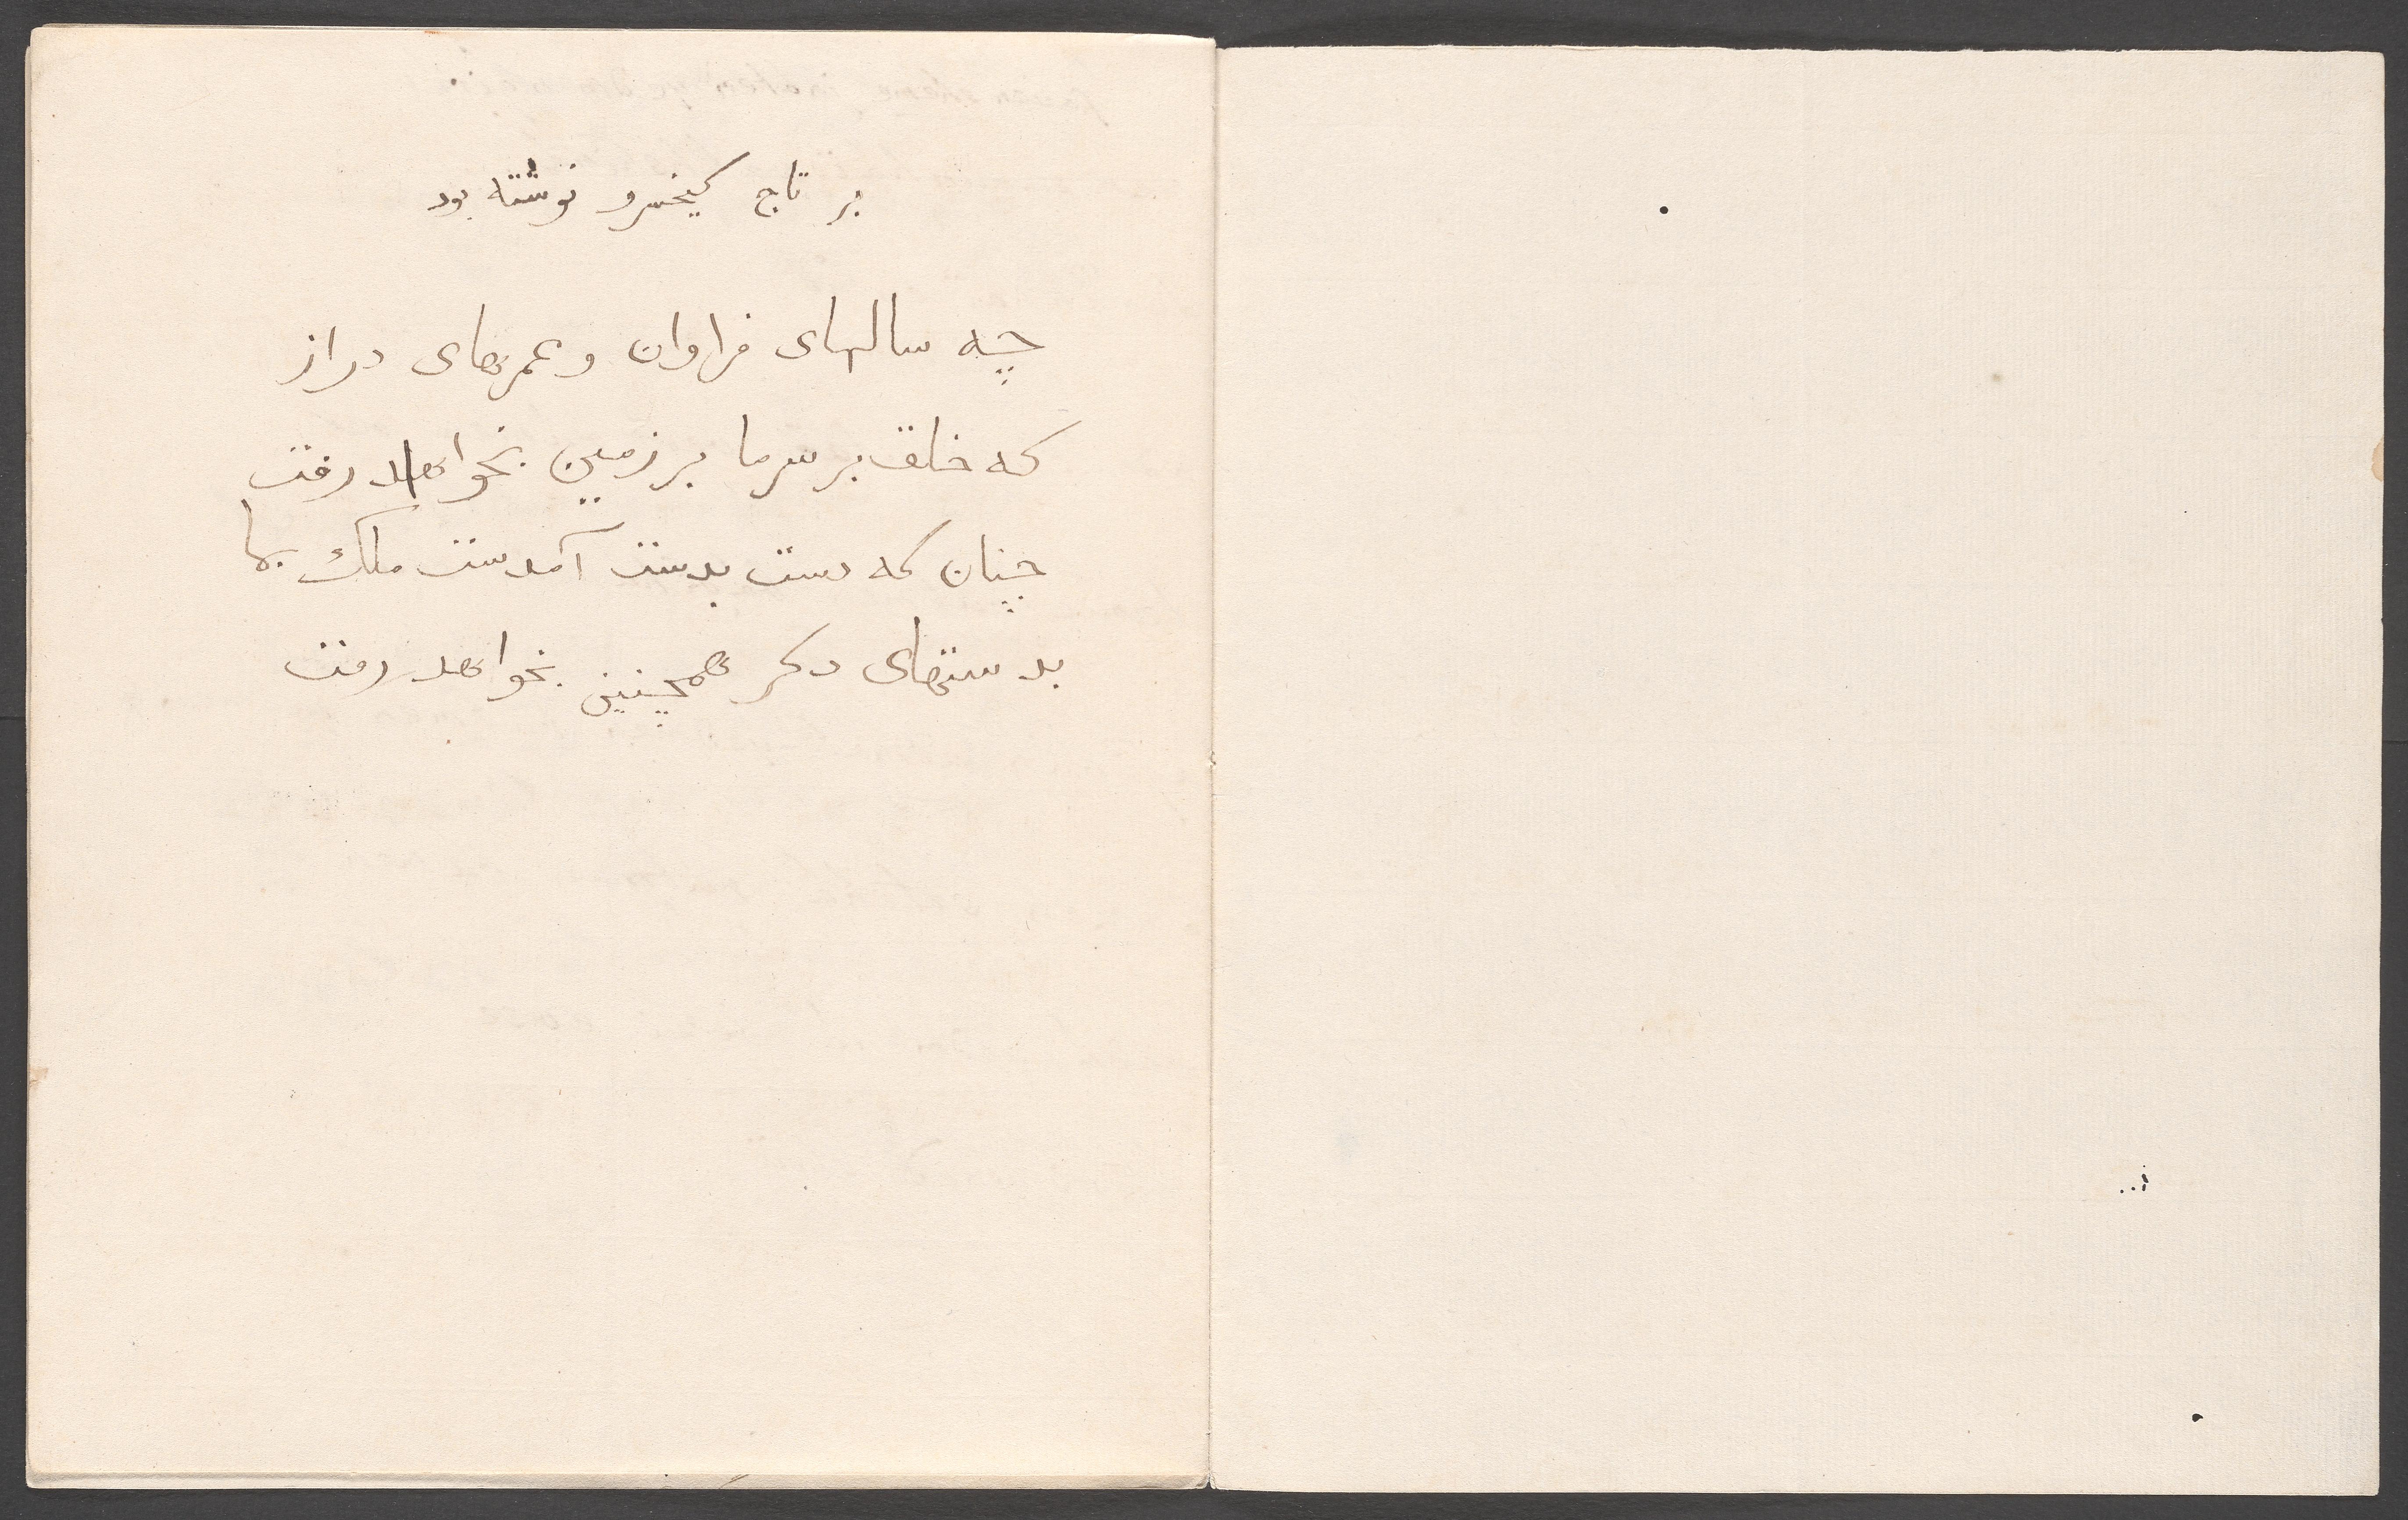 بر تاج كيخسرو نوشته بود
چه سالهای فراوان و عمرهای دراز
که خلق بر سر ما بر زمین بخواهد رفت
چنان که دست بدست آمدست ملك بما
بدستهای دکر همچنین بخواهد رفت